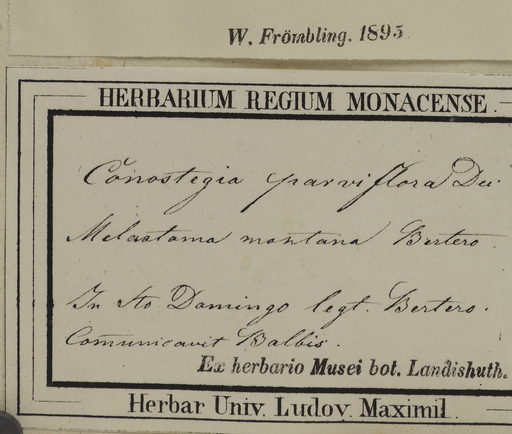 W. Frömbling. 1895
HERBARIUM REGIUM MONACENSE
Conostegia parviflora Dec.
Melastoma montana Bertero
In Sto Domingo legt. Bertero.
Comunicavit Balbis.
Ex herbario Musei bot. Landishuth.
Herbar Univ. Ludov. Maximil